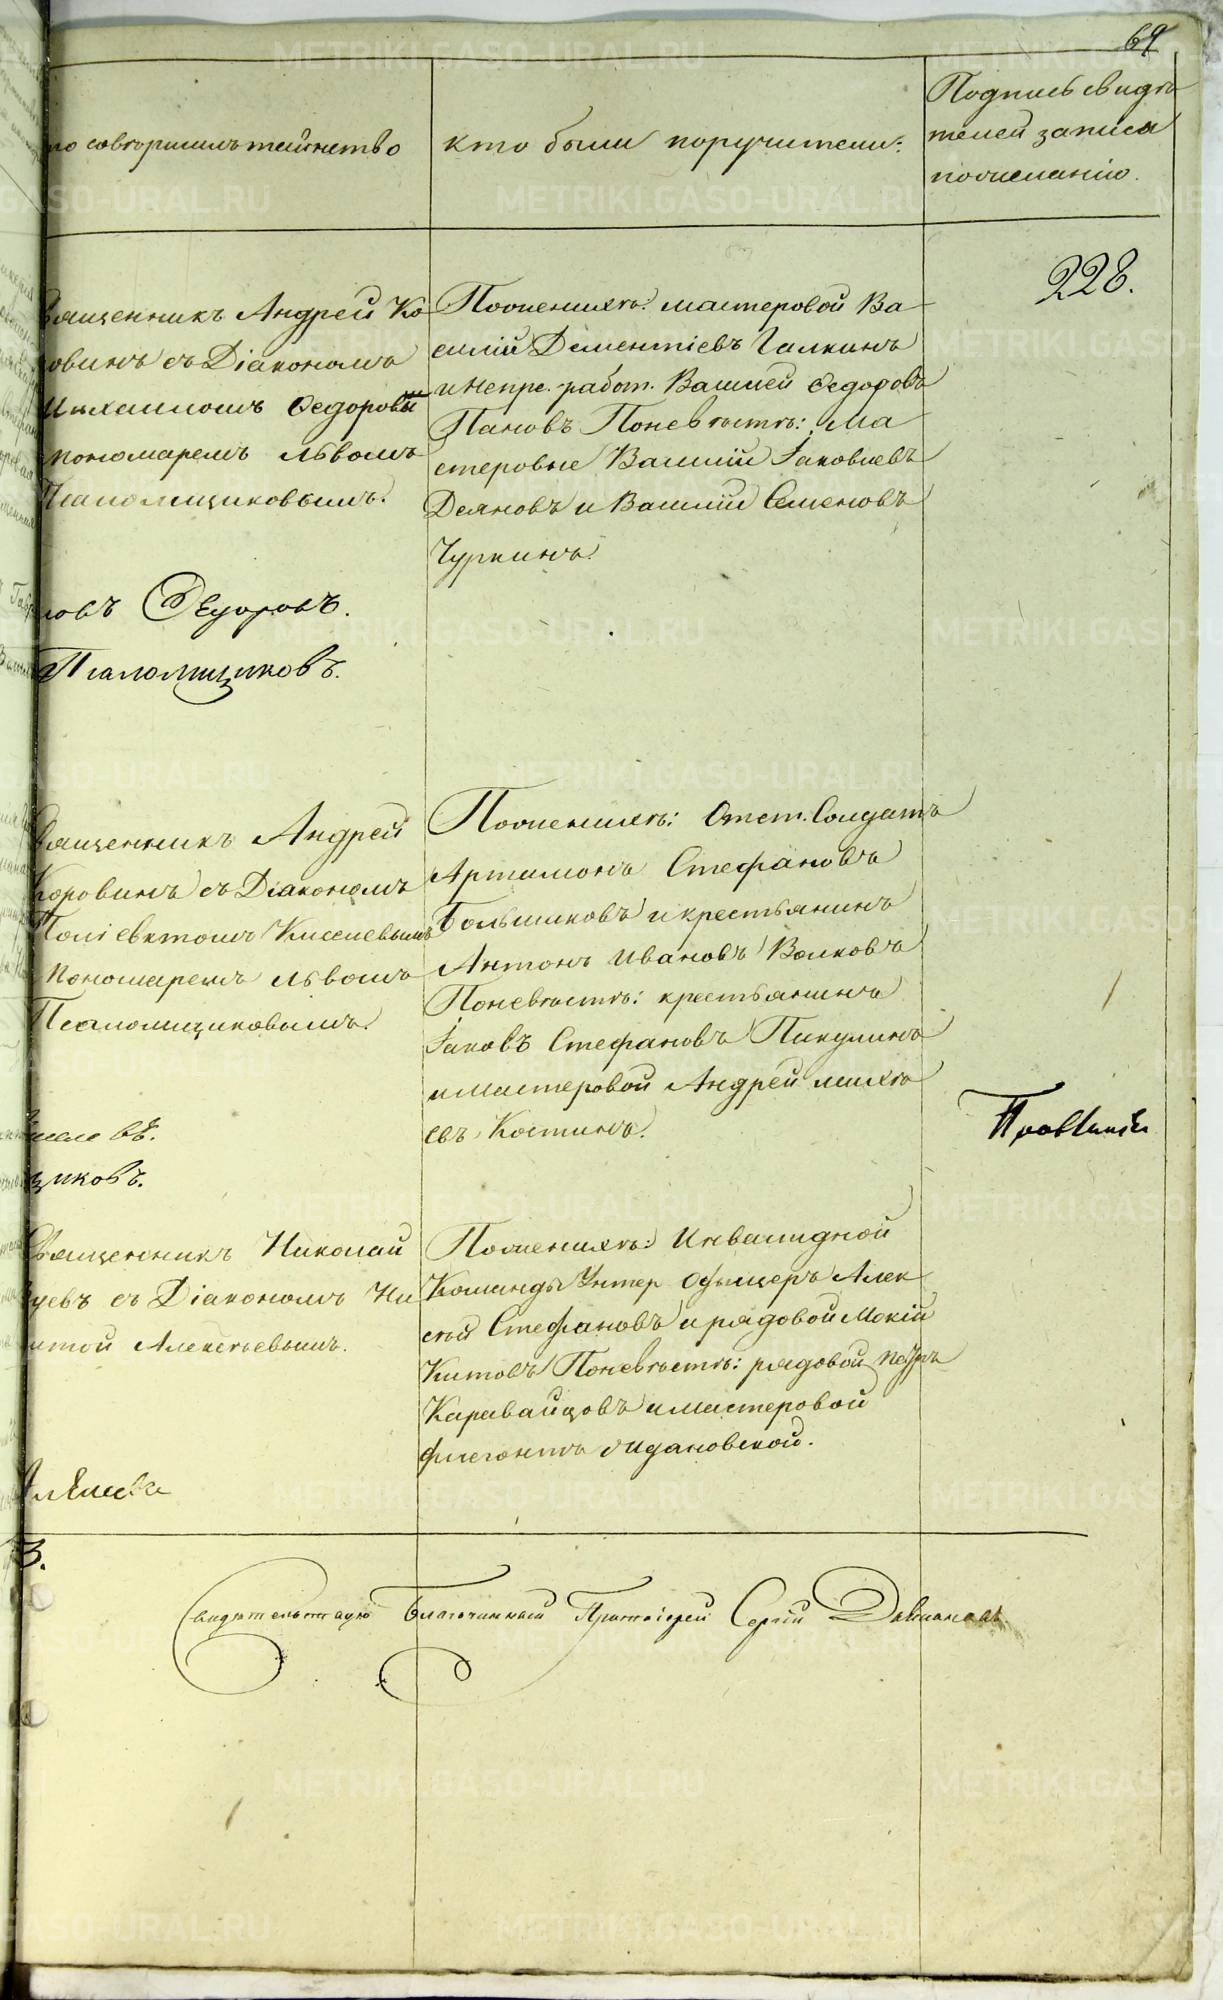 69
Кто совершилъ таинство
кто были поручители:
Подпись свидѣ
телей записи
по желанію.
228.
Священникъ Андрей Ко
ровинъ съ Діакономъ
Михаиломъ Ѳедоровы
пономаремъ Львомъ
Псаломщиковымъ.
Ѳедоровъ.
Псаломщиковъ.
По женихѣ: мастеровой Ва
силій Дементіевъ Галкинъ
и непре. работ. Василей Ѳедоровъ
Пановъ По невѣстѣ: Ма
стеровые Василій Іаковлевъ
Деяновъ и Василій Семеновъ
Чуркинъ.
Священникъ Андрей
Коровинъ съ Діакономъ
Поліевктомъ Киселевымъ
пономаремъ Львомъ
Псаломщиковымъ.
щиковъ.
По женихѣ: Отст. Солдатъ
Артамонъ Стефановъ
Большиковъ и крестьянинъ
Антонъ Ивановъ Волковъ
По невѣстѣ: крестьянинъ
Іаковъ Стефановъ Пикулинъ
и мастеровой Андрей михѣ
евъ Костинъ.
Священникъ Николай
съ Діакономъ Ни
китой Алексѣевымъ.
По женихѣ: Инвалидной
Команды Унтер офицеръ Алек
сѣй Стефановъ и рядовой Мокій
Китовъ По невѣстѣ: рядовой Петръ
Каравайцовъ и мастеровой
Флегонтъ
3.
Свидѣтельствую Благочинный Протоіерей Сергій
METRIKI.GASO-URAL.RU